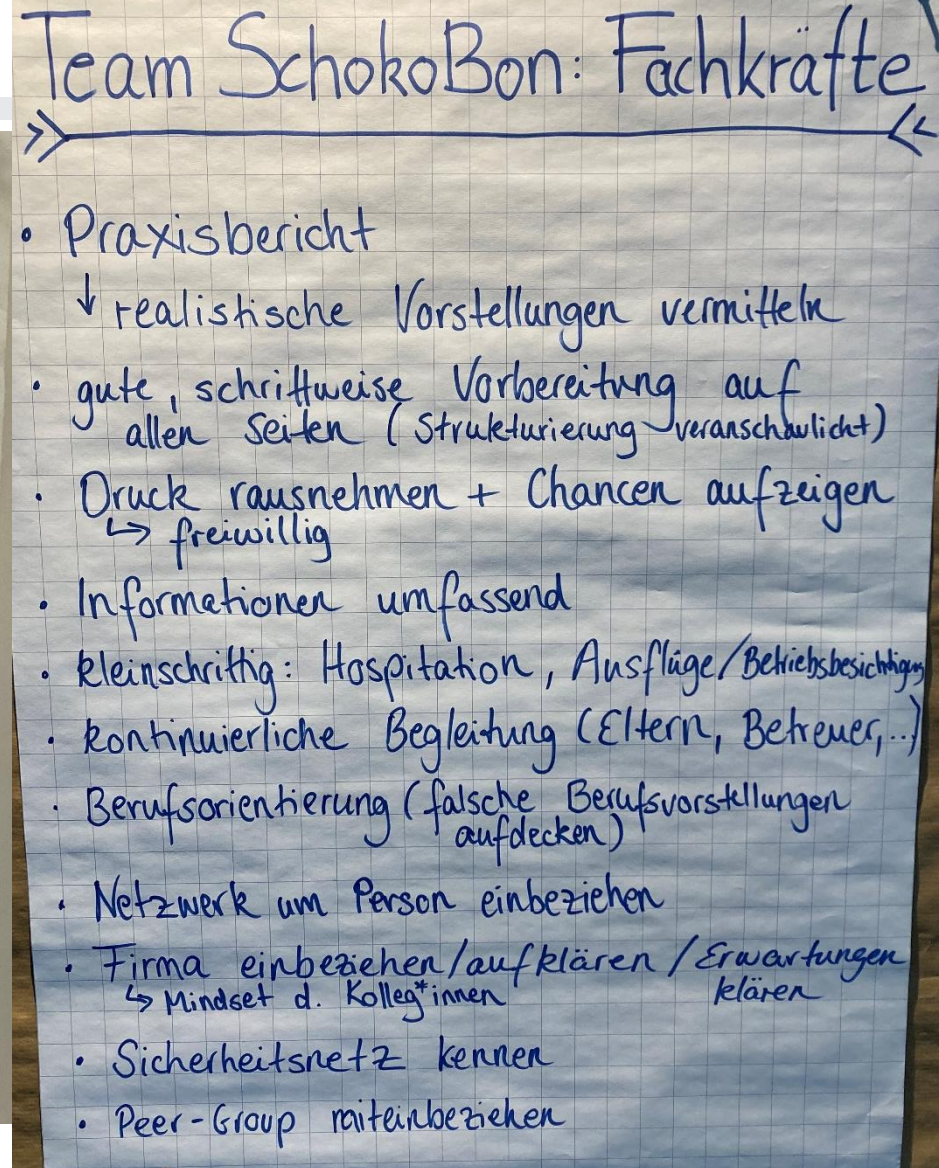 Team SchokoBon: Fachkräfte
• Praxisbericht
↓ realistische Vorstellungen vermitteln
• gute, schrittweise Vorbereitung auf
allen Seiten (Strukturierung veranschaulicht)
• Druck rausnehmen + Chancen aufzeigen
↳ freiwillig
• Informationen umfassend
• kleinschrittig: Hospitation, Ausflüge/Betriebsbesichtigung
• kontinuierliche Begleitung (Eltern, Betreuer,..)
• Berufsorientierung (falsche Berufsvorstellungen
aufdecken)
• Netzwerk um Person einbeziehen
• Firma einbeziehen/aufklären/Erwartungen
↳ Mindset d. Kolleg*innen klären
• Sicherheitsnetz kennen
• Peer-Group miteinbeziehen